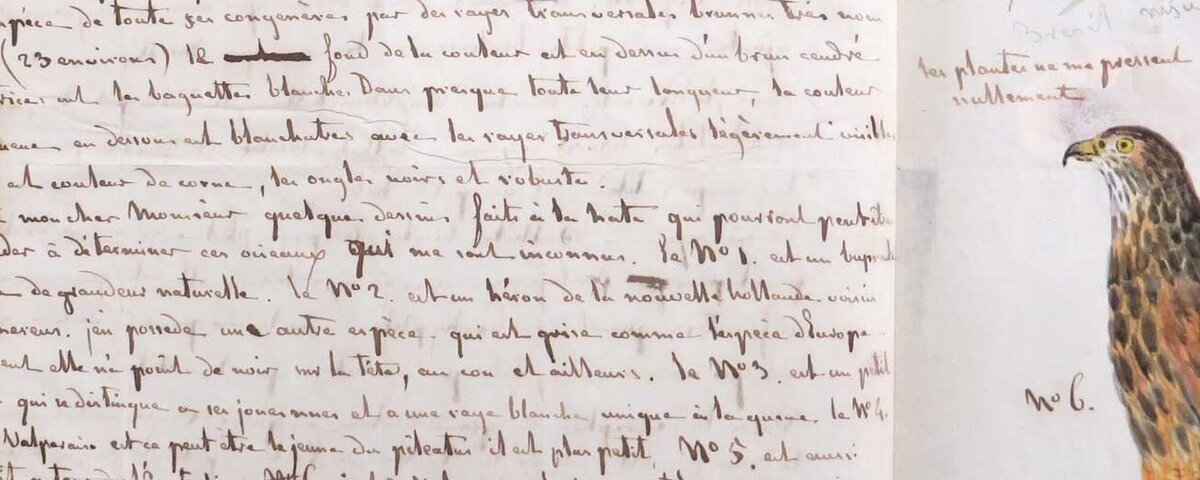 pèce de toute ses congenères par des rayes transversales brunnes très nom
(23 environs) le fond de la couleur est en dessus d'un brun cendré
rices ont les baguettes blanches Dans presque toute leur longueur, la couleur
ueue en dessous est blanchatres avec les rayes transversales légèrement visible
est couleur de corne, les ongles noirs et robuste.
mon cher Monsieur quelques dessins faits à la hate qui pourront peut être
der à déterminer ces oiseaux qui me sont inconnus. le No 1. est un
de grandeur naturelle. le No 2. est un héron de la nouvelle hollande voisin
j'en possede une autre espèce qui est grise comme l'espèce d'Europe
ent elle n'a point de noir sur la tête, au cou et ailleurs. le No 3. est un petit
qui se distingue a ses joues nues et a une raye blanche unique à la queue le No 4.
Valparaiso est ce peut être le jeune du pileatus il est plus petit, No 5. est aussi
les plantes ne me pressent
nullement
No 6.